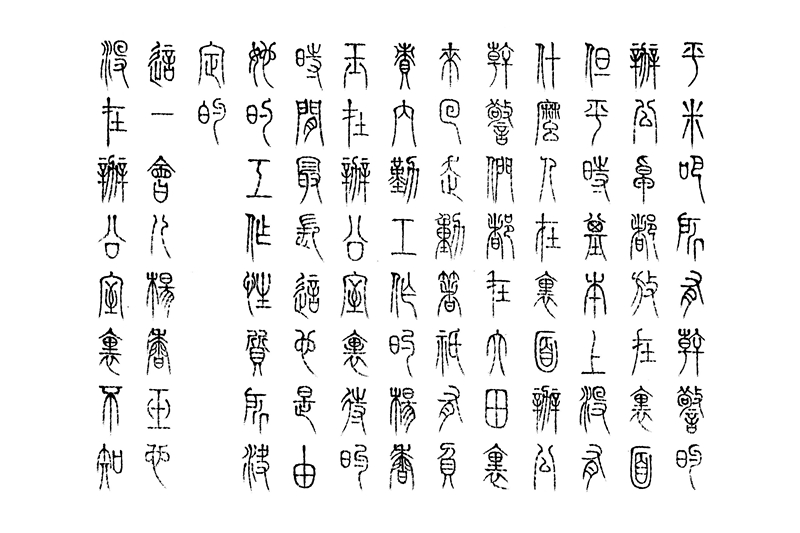 平米吧所有幹警的
辦公桌都放在裏面
但平時基本上沒有
什麼人在裏面辦公
幹警們都在大田裏
來回走動著衹有負
責內勤工作的楊香
玉在辦公室裏待的
時間最長這也是由
她的工作性質所決
定的
這一會兒楊香玉也
沒在辦公室裏不知